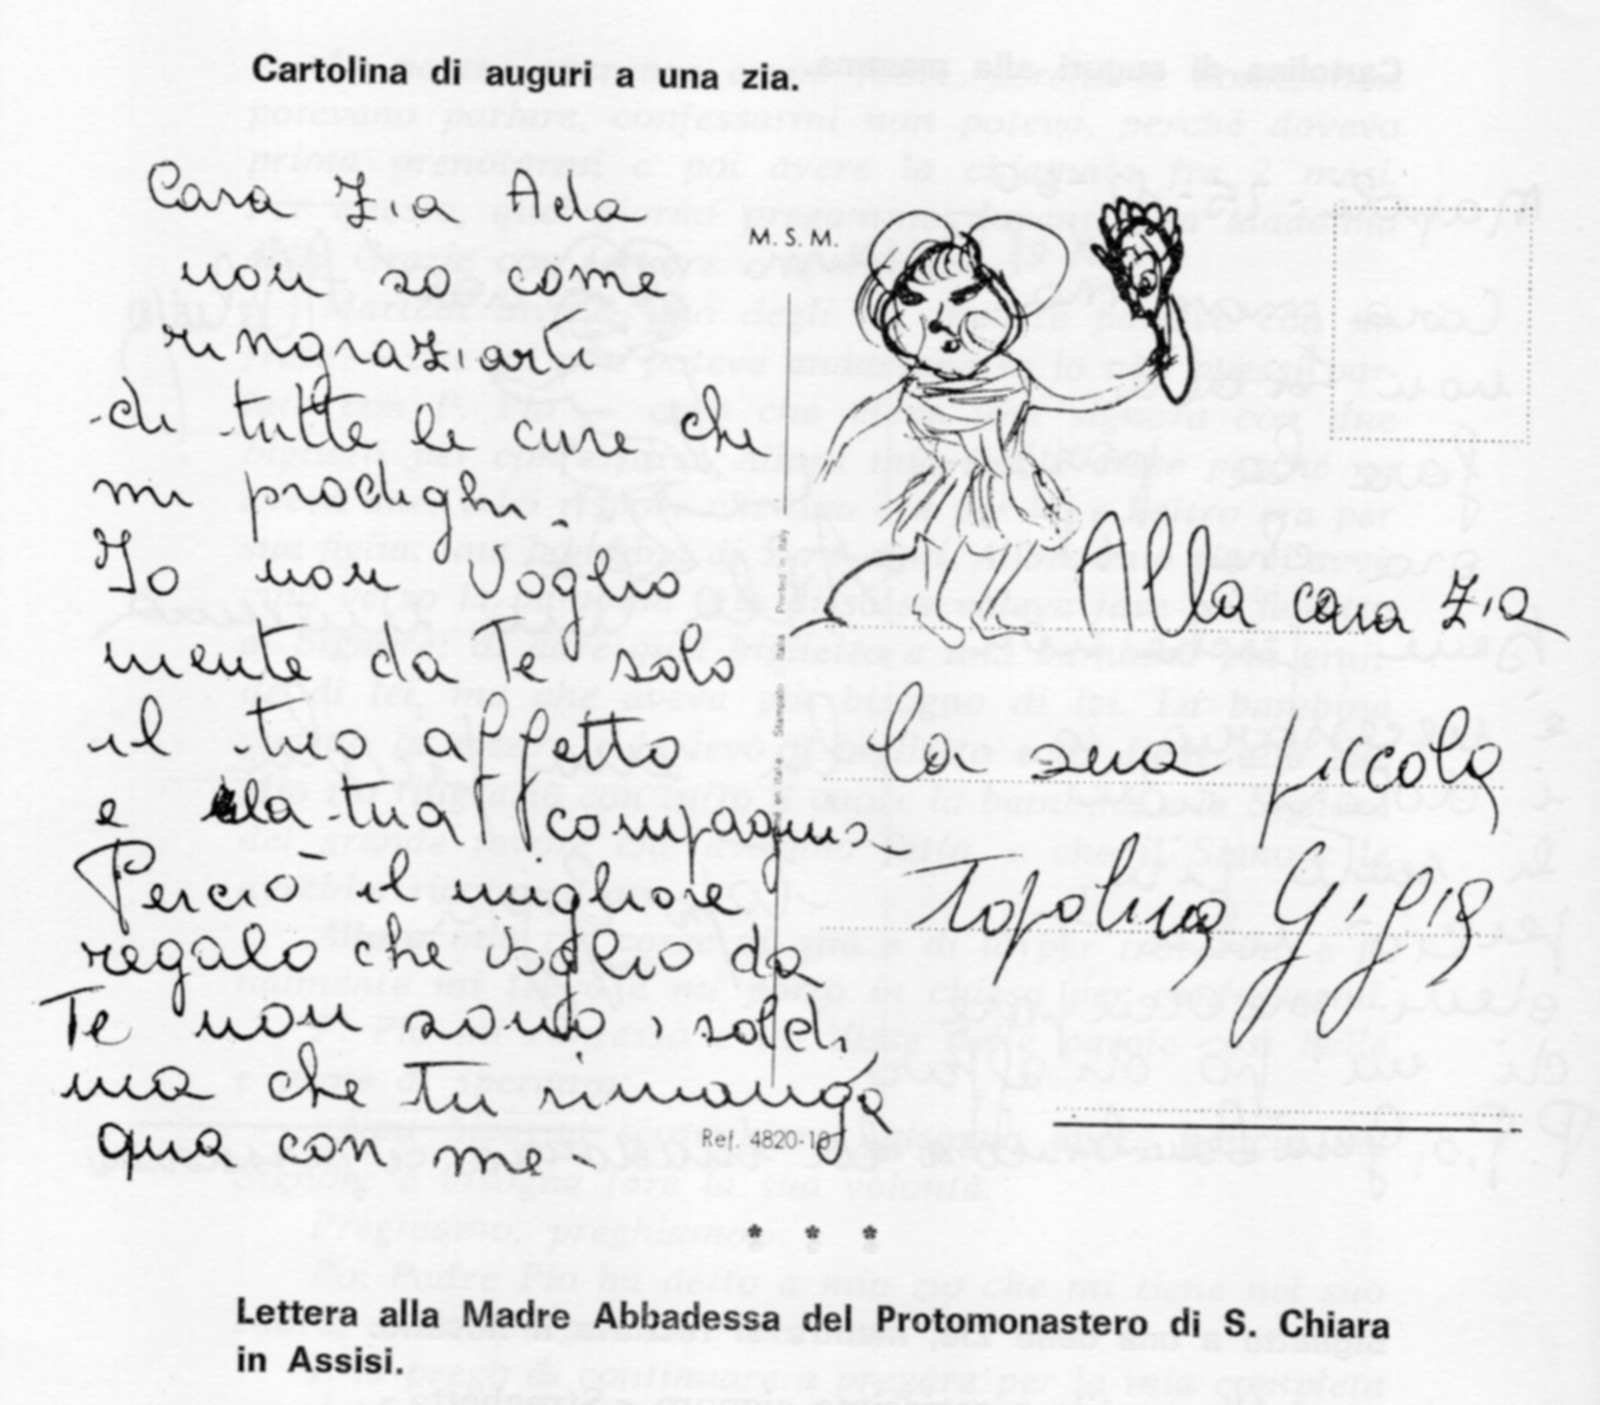 Cartolina di auguri a una zia.
Cara Zia Ada
non so come
ringraziarti
di tutte le cure che
mi prodighi.
Io non voglio
niente da Te solo
il tuo affetto
e la tua compagnia
Perciò il migliore
regalo che voglio da
Te non sono i soldi
ma che Tu rimanga
qua con me.
M. S. M.
Printed in Italy
Ref. 4820-10
Alla cara Zia
la sua piccola
Topolina Gigia
* * *
Lettera alla Madre Abbadessa del Protomonastero di S. Chiara
in Assisi.